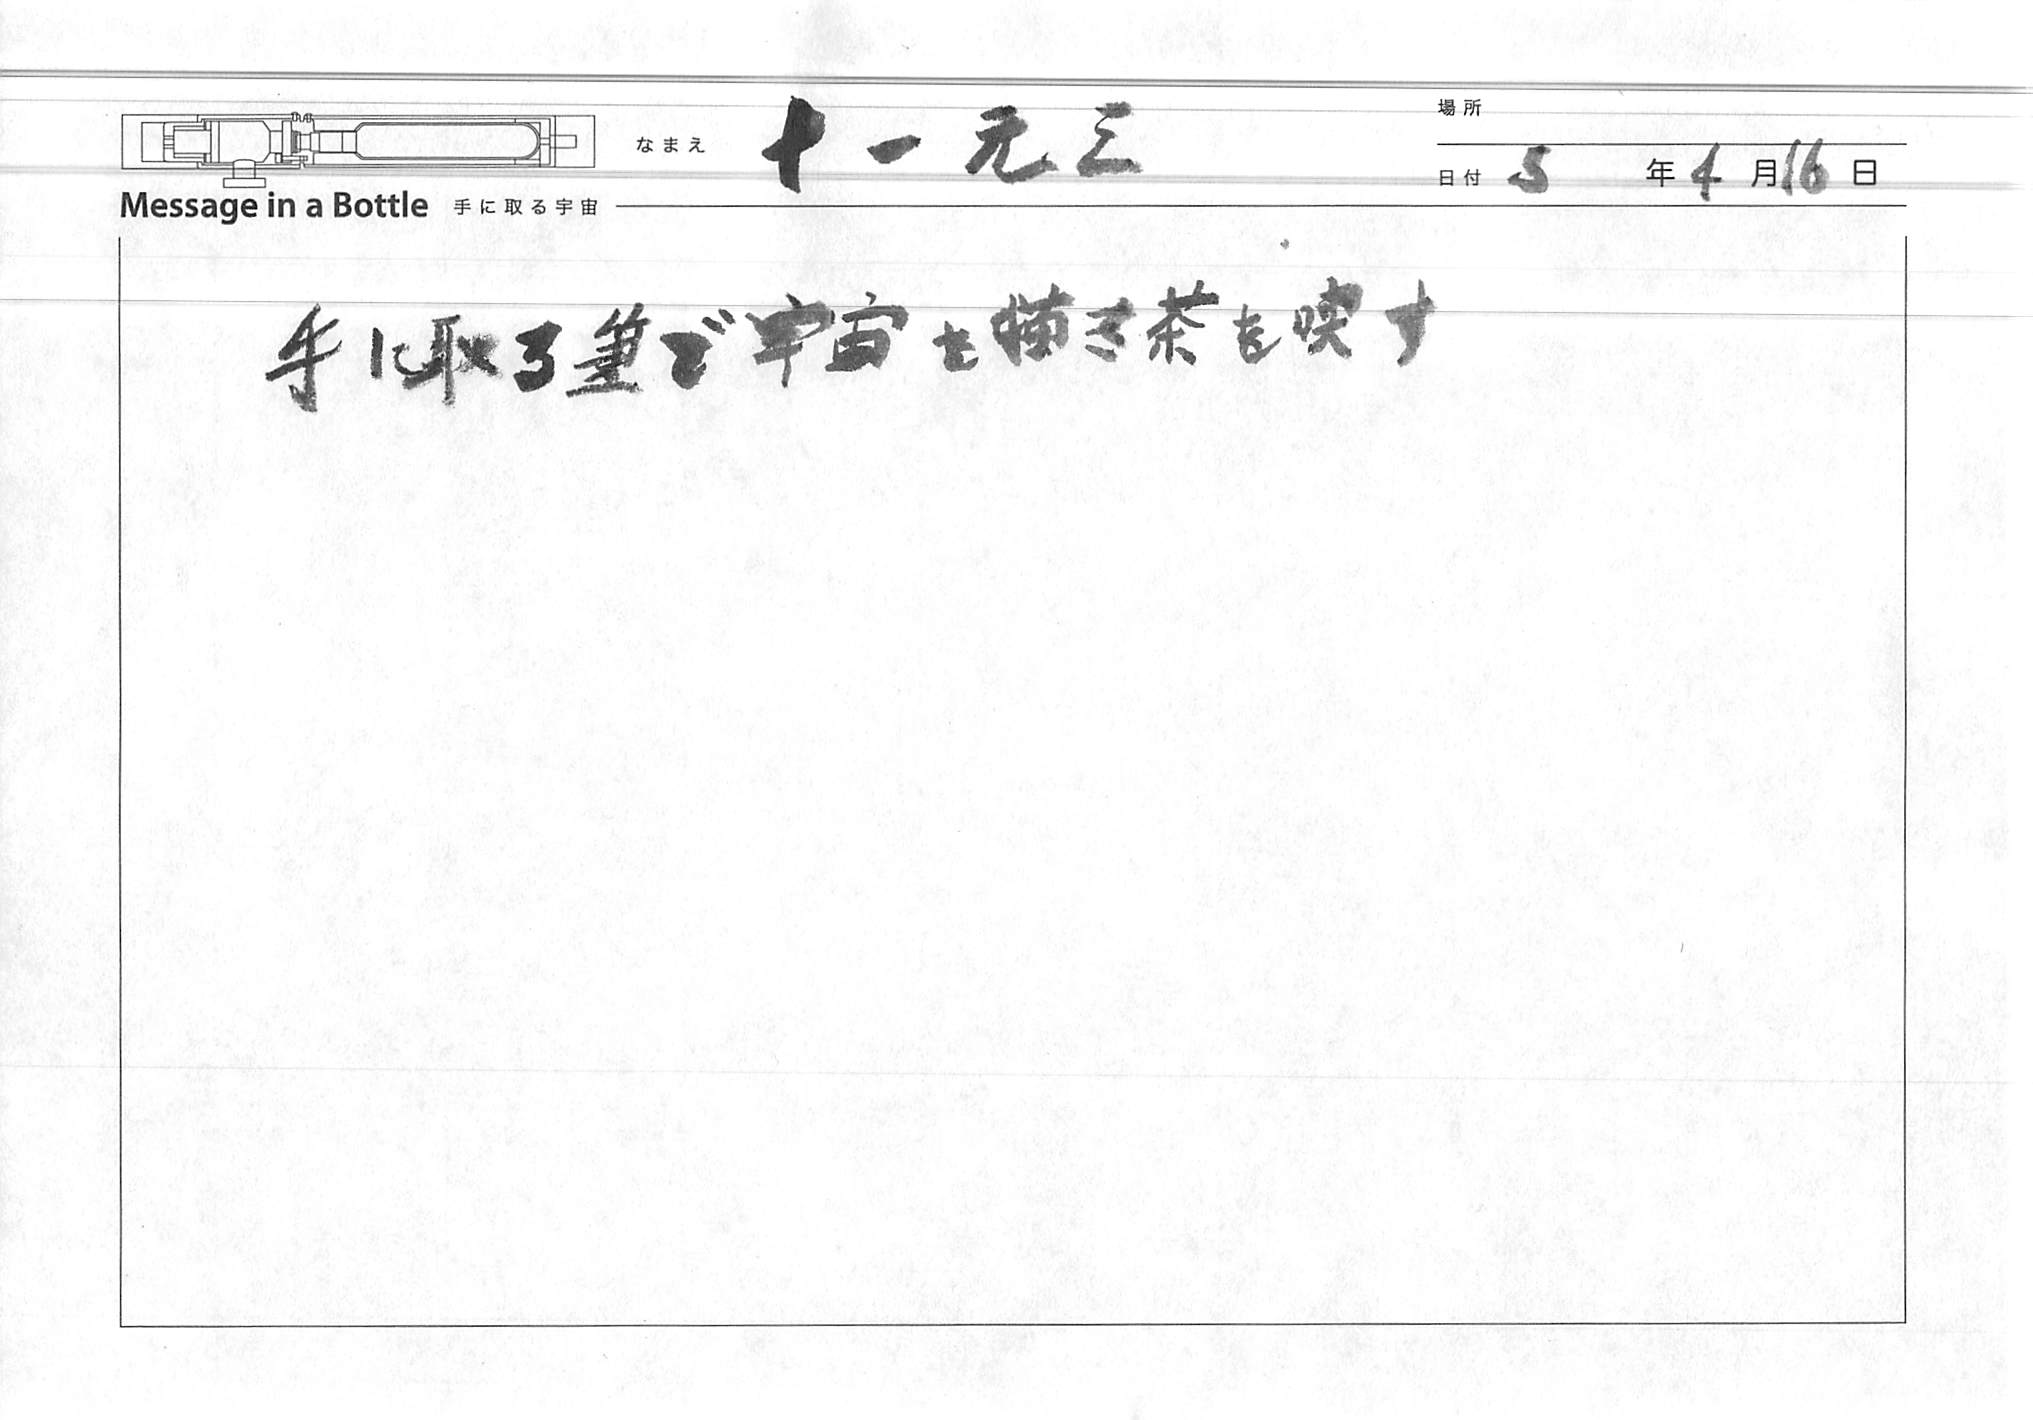 なまえ 十一元三
場所
日付 5 年 4 月 16 日
Message in a Bottle 手に取る宇宙
手に取る筆で宇宙を描き茶を喫す